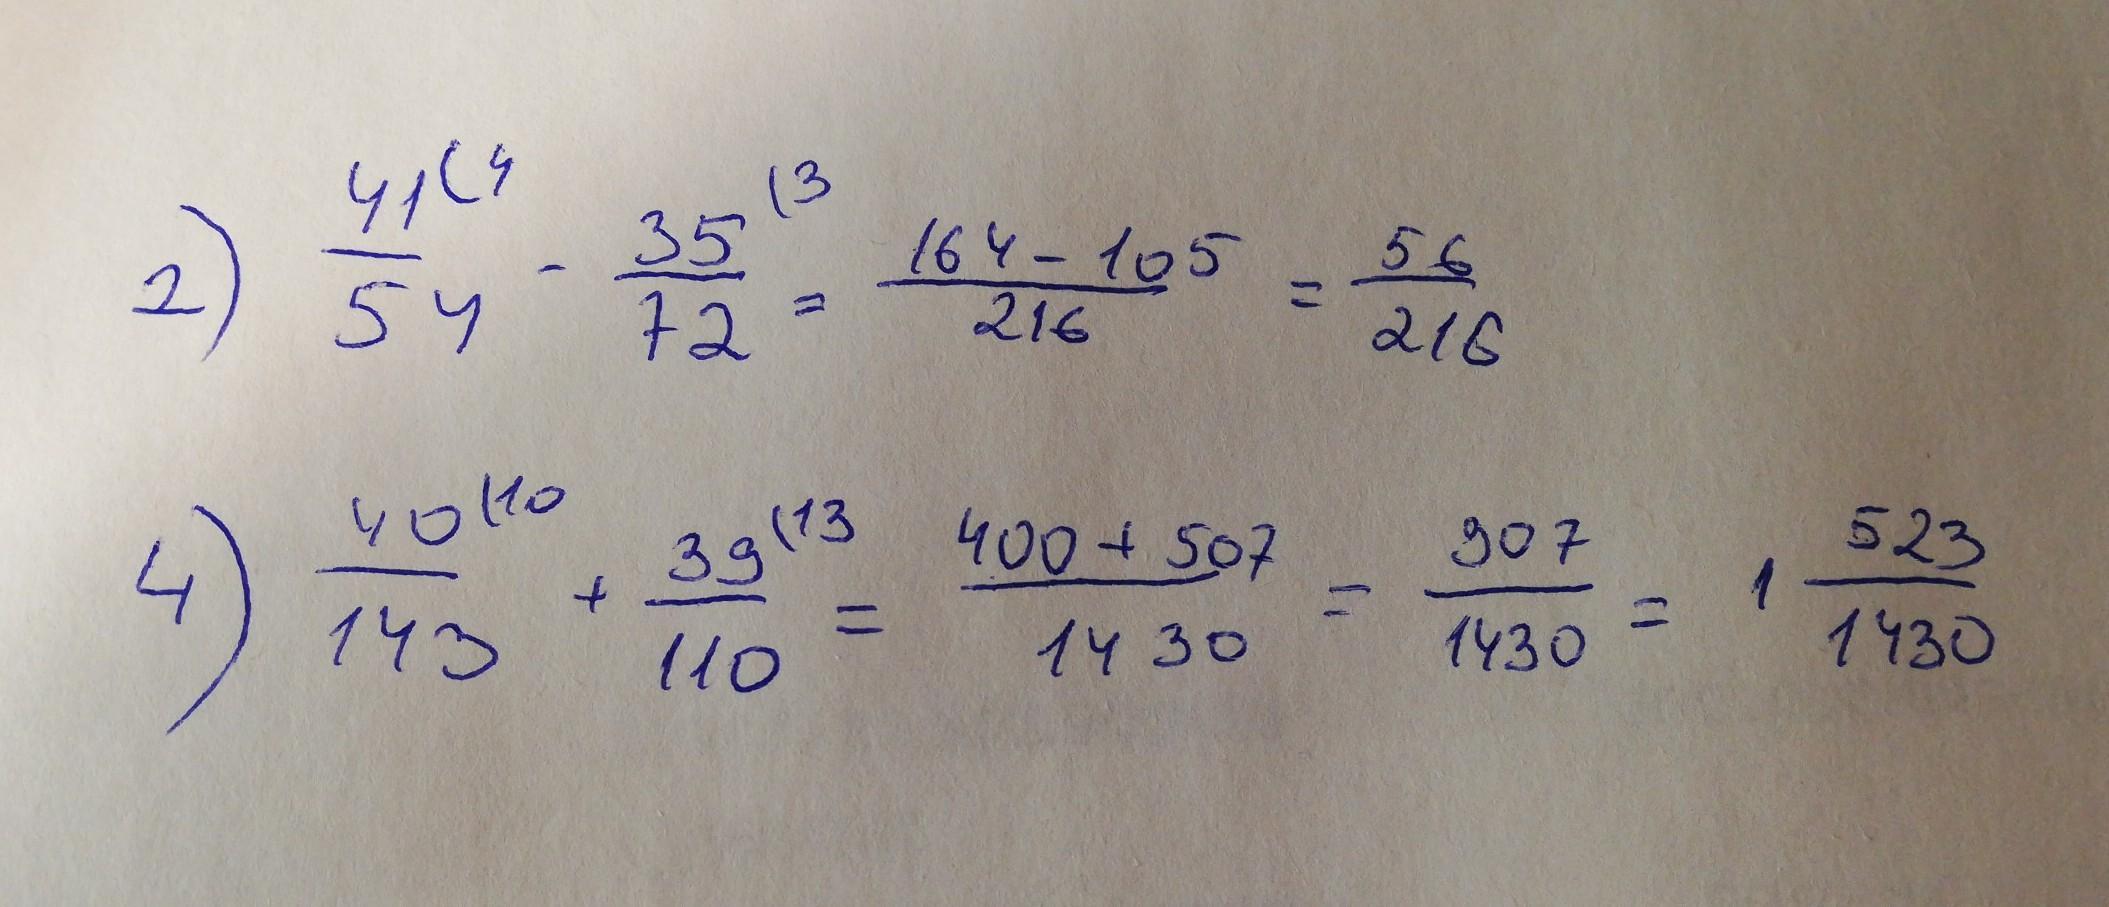 2) 41(4/54 - 35(3/72 = 164-105/216 = 56/216
4) 40(10/143 + 39(13/110 = 400+507/1430 = 907/1430 = 1 523/1430